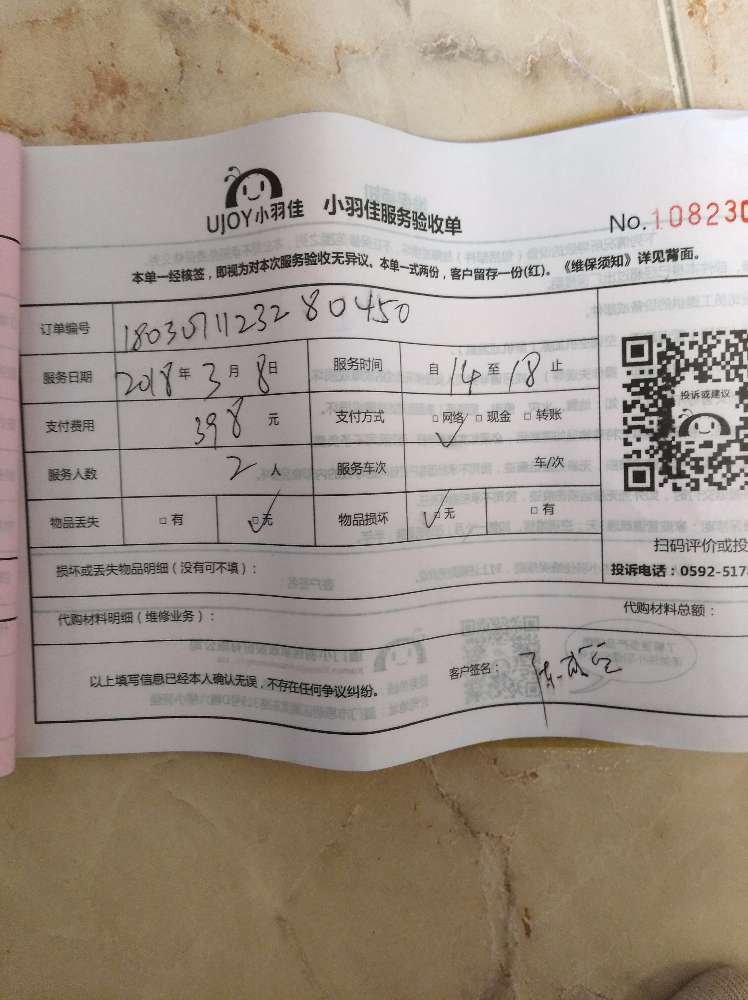 UJOY小羽佳 小羽佳服务验收单
No.108230
本单一经核签，即视为对本次服务验收无异议。本单一式两份，客户留存一份(红)。《维保须知》详见背面。
订单编号
服务日期 2018年3月8日 服务时间 自14至18止
支付费用 398元 支付方式 □网络 □现金 □转账
服务人数 2人 服务车次 车/次
物品丢失 □有 □无 物品损坏 □无 □有
投诉或建议
扫码评价或投
损坏或丢失物品明细（没有可不填）：
投诉电话：0592-517
代购材料明细（维修业务）：
代购材料总额：
以上填写信息已经本人确认无误，不存在任何争议纠纷。
客户签名：